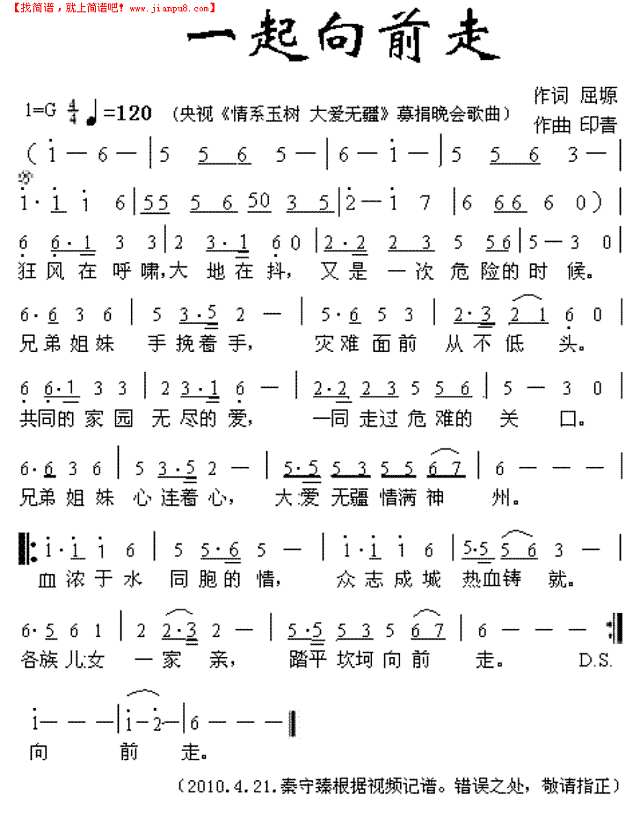 【找简谱，就上简谱吧! www.jianpu8.com】
一起向前走
1=G 4/4 ♩=120 （央视《情系玉树 大爱无疆》募捐晚会歌曲）
作词 屈塬
作曲 印青
（ i － 6 － | 5 5 6 5 － | 6 － i － | 5 5 6 5 3 － |
i · i i 6 | 55 5 6 50 3 5 | 2 － i 7 | 6 66 6 0 ） |
6 6·1 3 3 | 2 3·1 6 0 | 2·2 2 3 5 5 6 | 5 － 3 0 |
狂风在呼啸,大地在抖，又是一次危险的时候。
6·6 3 6 | 5 3·5 2 － | 5·6 5 3 | 2·3 2 1 6 0 |
兄弟姐妹 手挽着手， 灾难面前 从不低头。
6 6·1 3 3 | 2 3·1 6 － | 2·2 2 3 5 5 6 | 5 － 3 0 |
共同的家园 无尽的爱， 一同走过危难的关口。
6·6 3 6 | 5 3·5 2 － | 5·5 5 5 5 5 6 7 | 6 － － － |
兄弟姐妹 心连着心， 大爱无疆 情满神州。
‖: i·i i 6 | 5 5·6 5 － | i·i i 6 | 5·5 5 6 3 － |
血浓于水 同胞的情， 众志成城 热血铸就。
6·5 6 1 | 2 2·3 2 － | 5·5 5 3 5 6 7 | 6 － － － :‖
各族儿女 一家亲， 踏平坎坷向前走。 D.S.
i － － － | i － 2 － | 6 － － － ‖
向 前 走。
（2010.4.21.秦守臻根据视频记谱。错误之处，敬请指正）